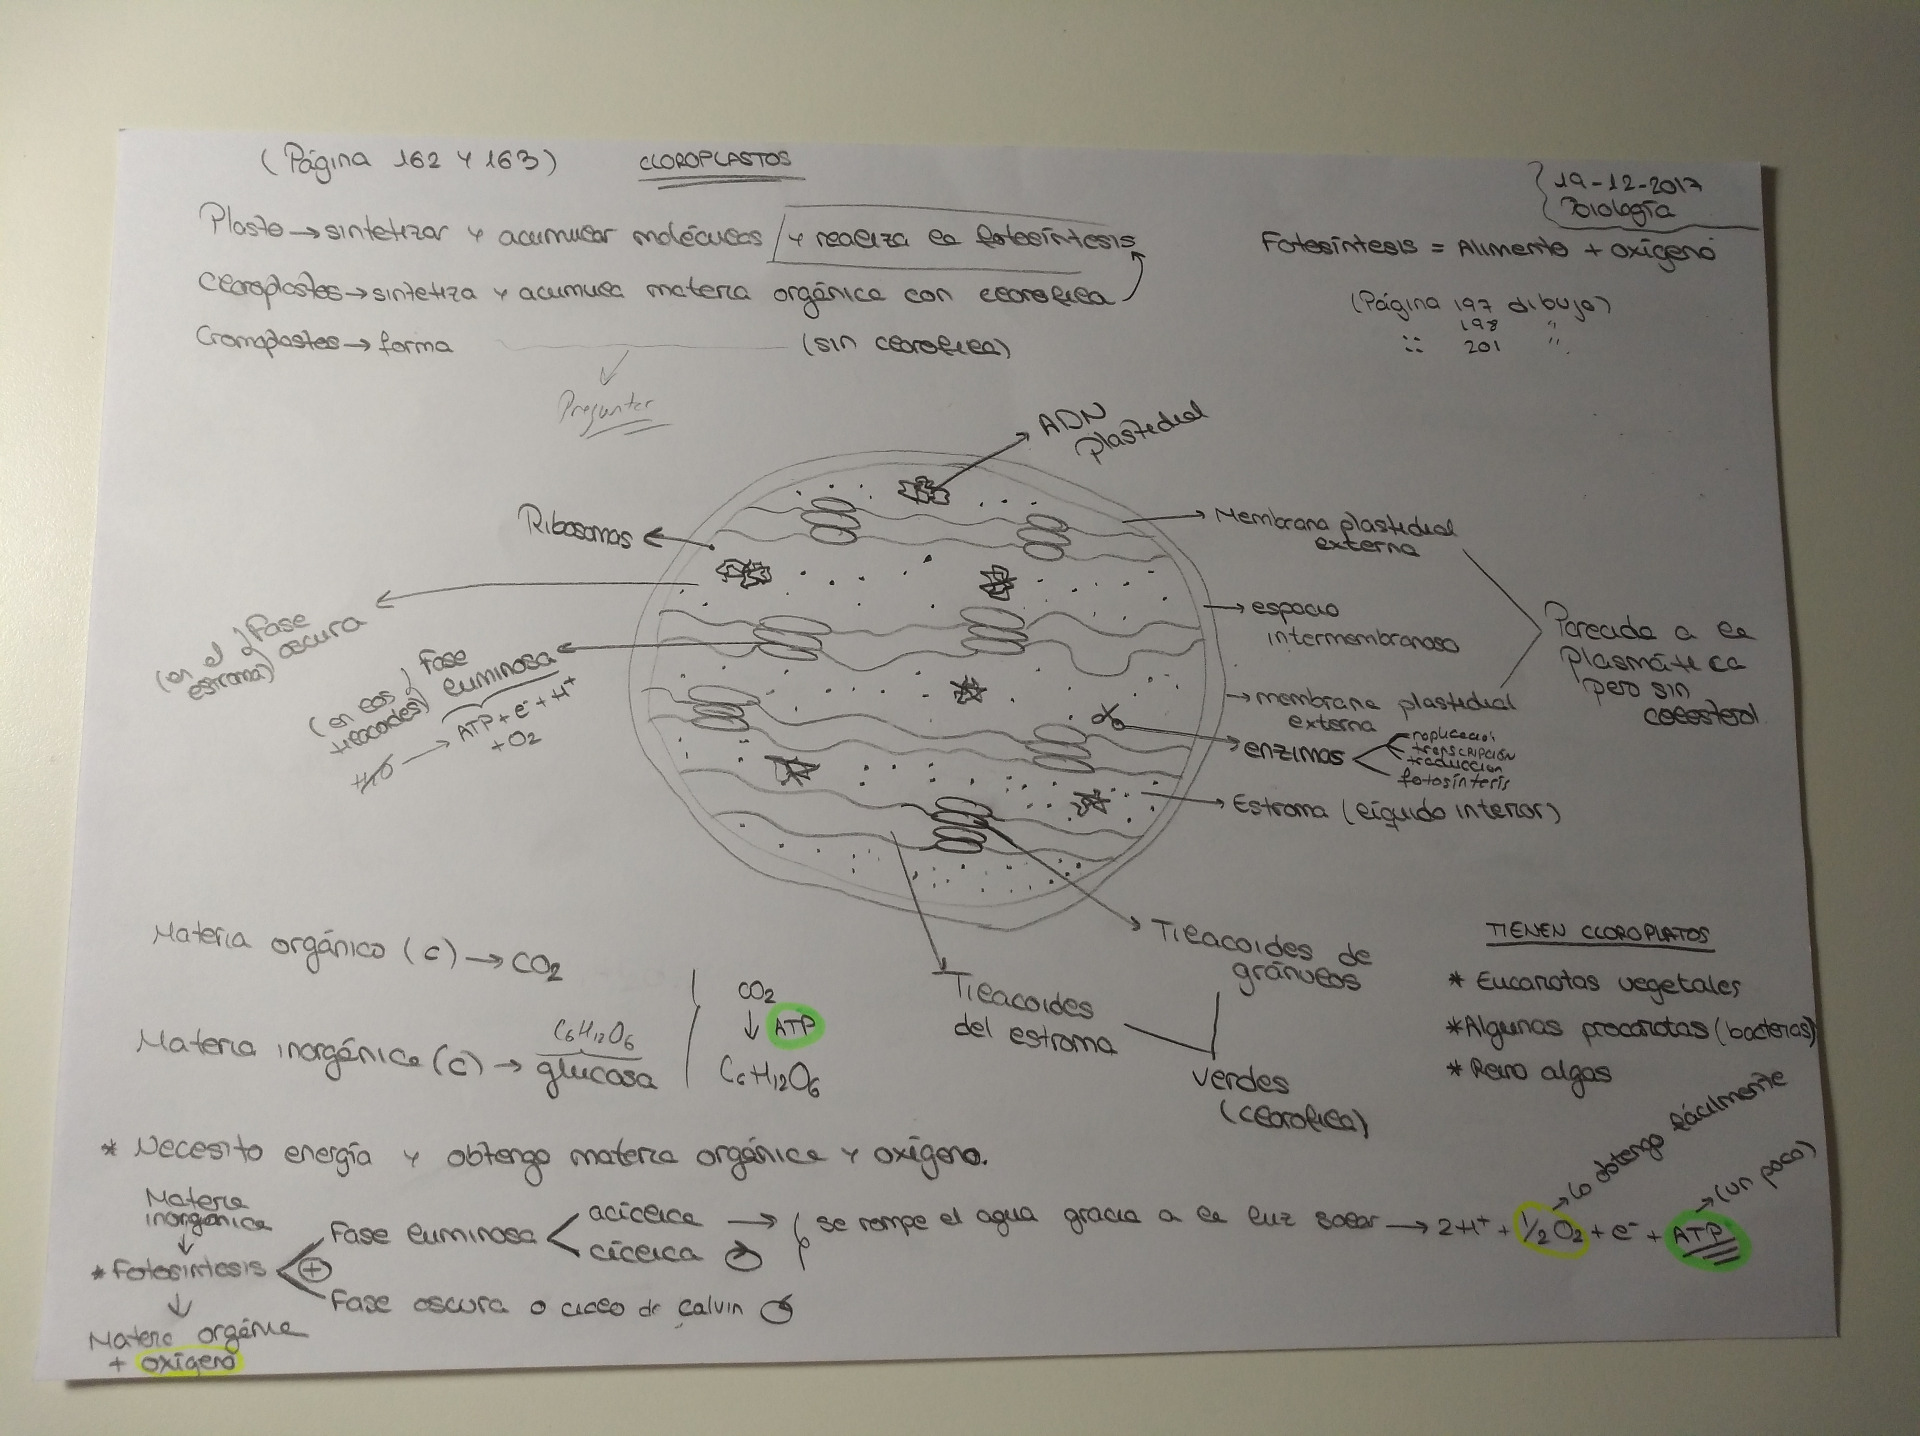 (Página 162 y 163)
CLOROPLASTOS
19-12-2017
Biología
Plasto → sintetizar y acumular moléculas / y realiza la fotosíntesis
Cloroplastos → sintetiza y acumula materia orgánica con clorofila
Cromoplastos → forma (sin clorofila)
Preguntar
Fotosíntesis = Alimento + oxígeno
(Página 197 dibujo)
198 "
:: 201 ".
ADN
plastidial
Ribosomas
Membrana plastidial
externa
espacio
intermembranoso
membrana plastidial
externa
Parecida a la
plasmática
pero sin
colesterol
enzimas
replicación
transcripción
traducción
fotosíntesis
Estroma (líquido interior)
Fase
oscura
(en el
estroma)
Fase
luminosa
(en los
tilacoides)
H2O → ATP + e- + H+
+ O2
Tilacoides de
gránulos
Tilacoides
del estroma
verdes
(clorofila)
Materia orgánico (c) → CO2
Materia inorgánica (c) → C6H12O6
glucosa
CO2
↓ ATP
C6H12O6
TIENEN CLOROPLATOS
* Eucariotas vegetales
* Algunas procariotas (bacterias)
* Reino algas
* Necesito energía y obtengo materia orgánica y oxígeno.
Materia
inorgánica
↓
* Fotosíntesis
+
Fase luminosa
acíclica →
cíclica
se rompe el agua gracia a la luz solar → 2H+ + 1/2 O2 + e- + ATP
→ lo obtengo fácilmente
→ (un poco)
Fase oscura o ciclo de Calvin
↓
Materia orgánica
+ oxígeno